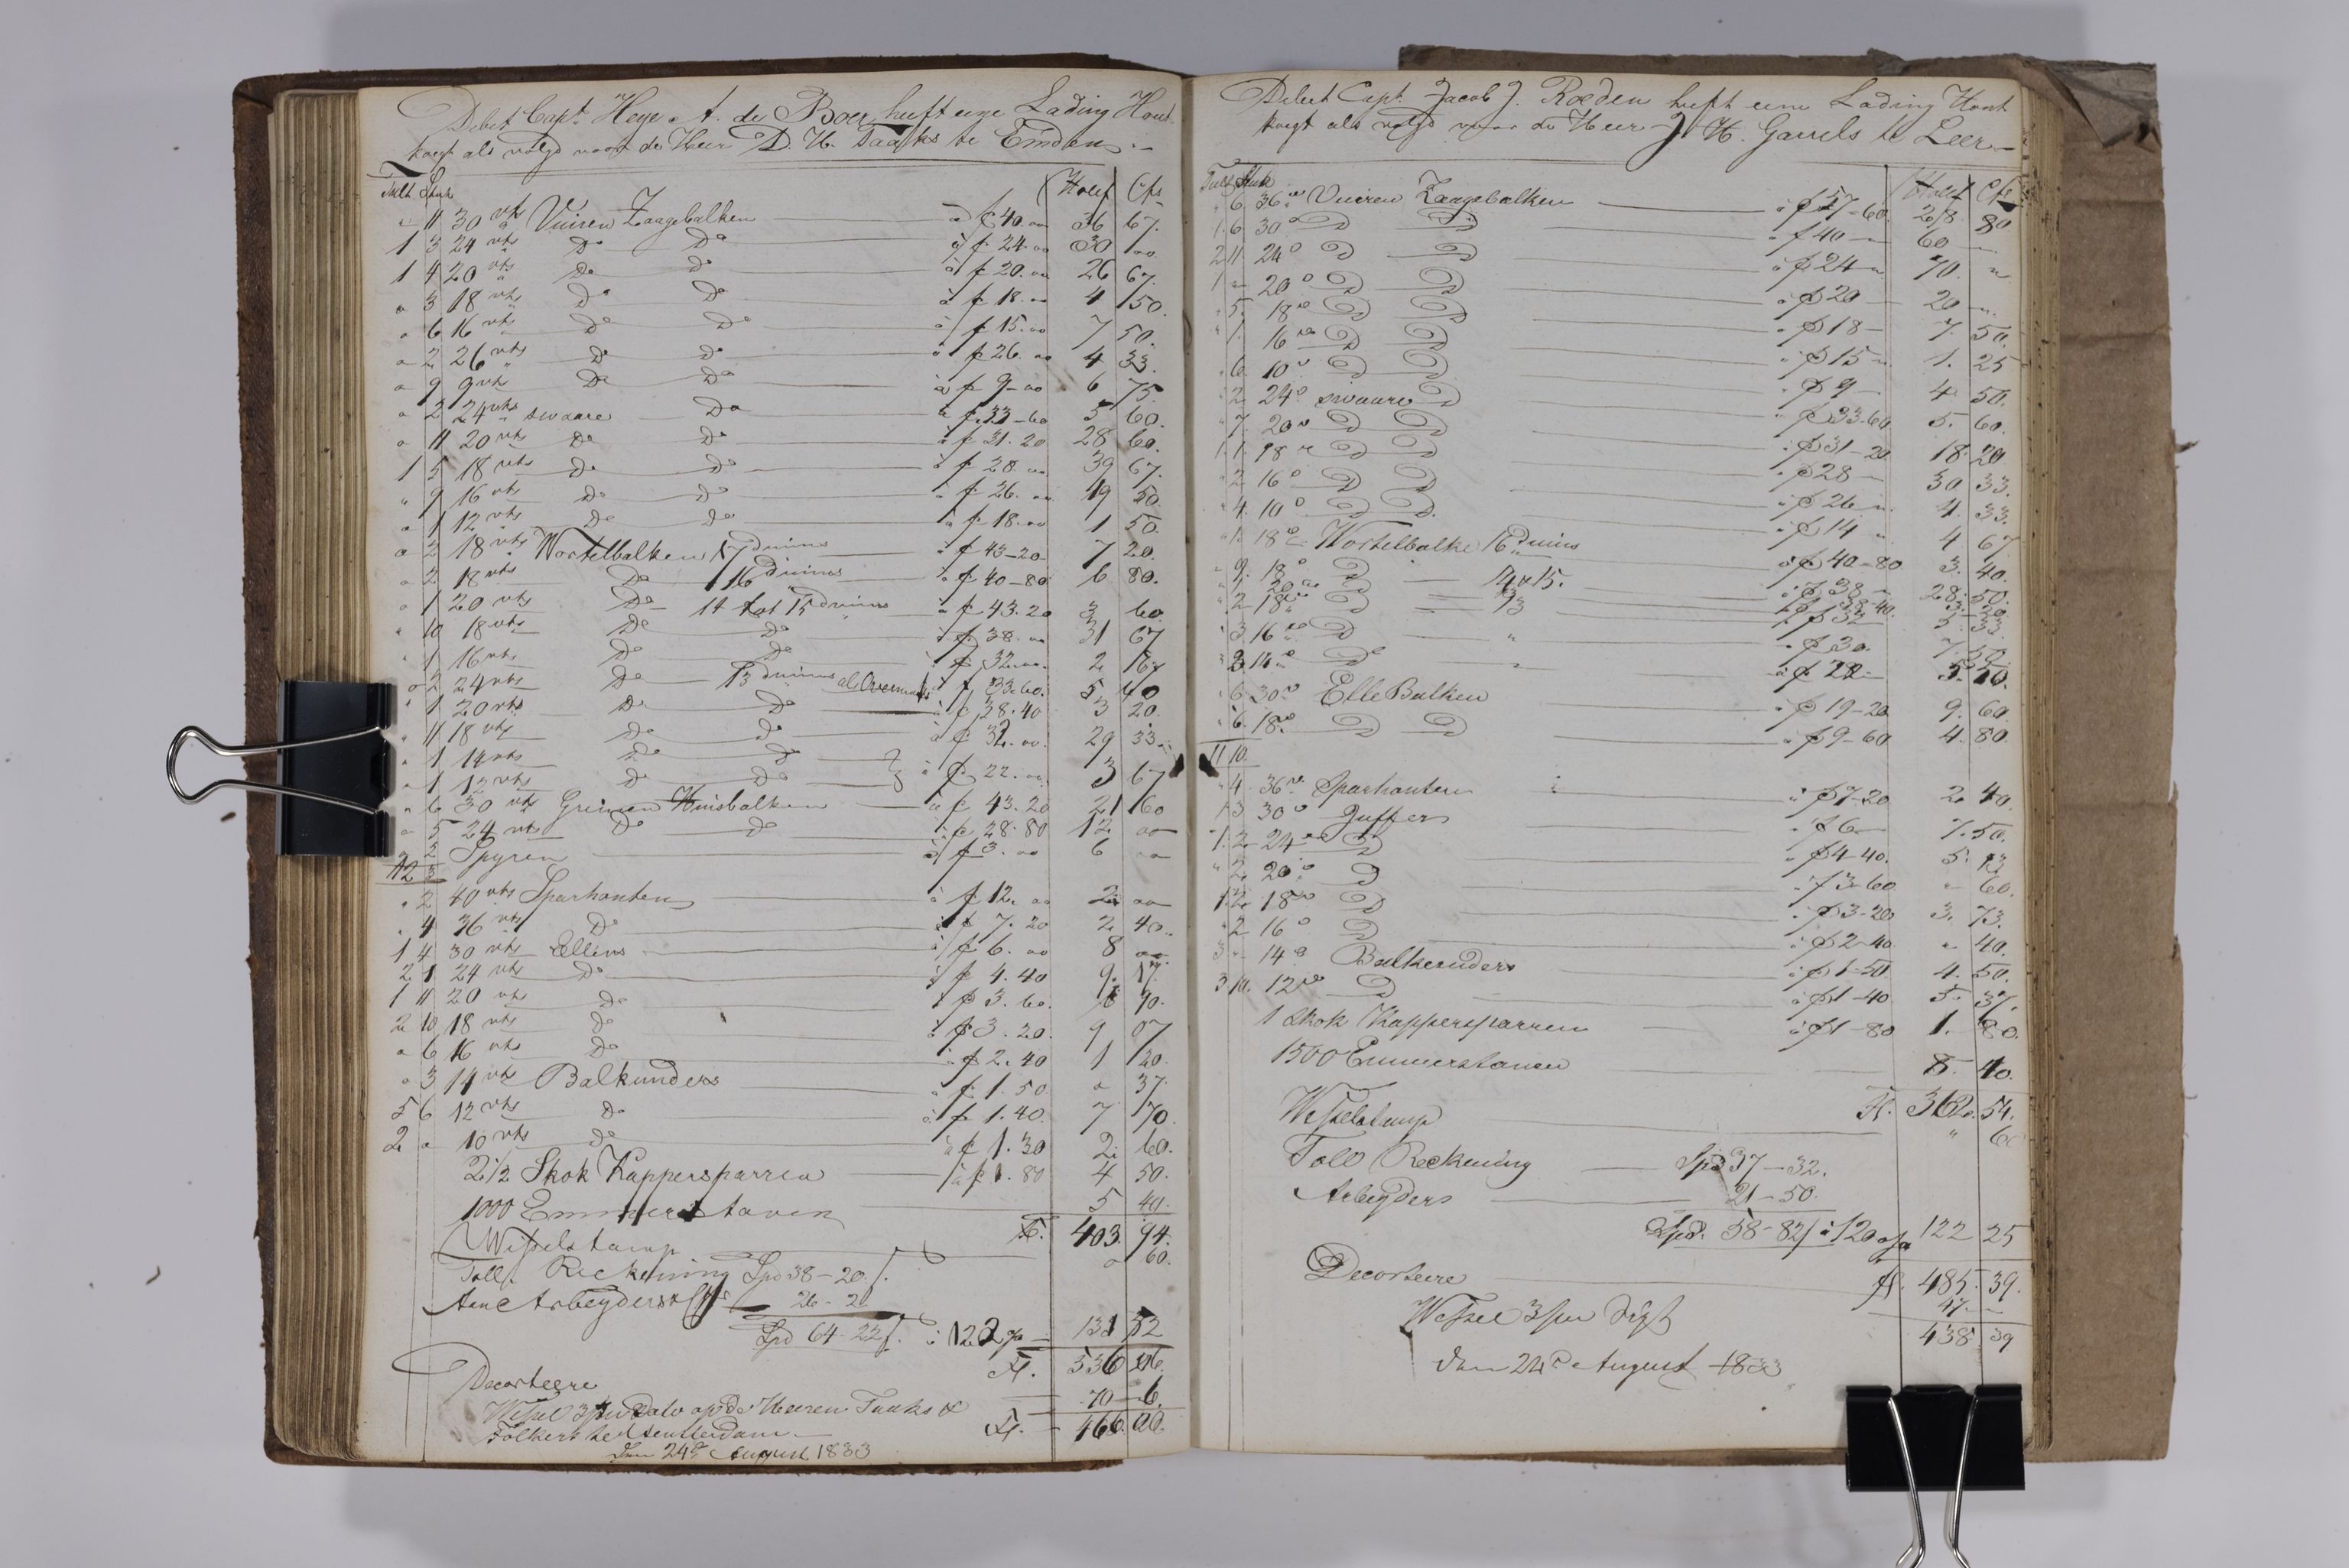 Debet Capt. Heye A. de Boer heeft eene Lading Hout
koegt als volgd voor de Heer D. H. Taaks te Emden.
Tult Stuk Holl Cts
" 11 30 vts Vuiren Zaagebalken à f 40. " 36 67.
1 3 24 vts Do Do à f 24. " 30 "
1 4 20 vts Do Do à f 20. " 26 67.
" 3 18 vts Do Do à f 18. " 4 50.
" 6 16 vts Do Do à f 15. " 7 50.
" 2 26 vts Do Do à f 26. " 4 33.
" 9 9 vts Do Do à f 9 - " 6 75.
" 2 24 vts swaare Do à f 33 - 60 5 60.
" 11 20 vts Do Do à f 31. 20 28 60.
1 5 18 vts Do Do à f 28. " 39 67.
" 9 16 vts Do Do à f 26. " 19 50.
" 1 12 vts Do Do à f 18. " 1 50.
" 2 18 vts Wortelbalken 17 duims à f 43 - 20 7 20.
" 2 18 vts Do 16 duims à f 40 - 80 6 80.
" 1 20 vts Do 14 tot 15 duims à f 43. 20 3 60
" 10 18 vts Do Do à f 38. " 31 67
" 1 16 vts Do Do à f 32. " 2 67
" 2 24 vts Do 13 duims à f 33. 60. 5 40
" 1 20 vts Do Do à f 38. 40 3 20.
" 11 18 vts Do Do à f 32. " 29 33.
" 1 14 vts Do Do
" 1 12 vts Do Do à f 22. " 3 67
" 6 30 vts Grinen Huisbalken à f 43. 20 21 60
" 5 24 vts Do Do à f 28. 80 12 "
" 2 Spyren à f 3. " 6 "
12 3
" 2 40 vts Sparhouten à f 12. " 2 "
" 4 36 vts Do à f 7. 20 2 40.
1 4 30 vts Ellens à f 6. " 8 "
2 1 24 vts Do à f 4. 40 9. 17.
1 11 20 vts Do à f 3. 60. 6 90.
2 10 18 vts Do à f 3. 20. 9 07
" 6 16 vts Do à f 2. 40 1 20.
" 3 14 vts Balkunders à f 1. 50 " 37.
5 6 12 vts Do à f 1. 40. 7 70.
2 " 10 vts Do à f 1. 30 2. 60.
2 1/2 Skok Kappersparren à f 1. 80 4 50.
1000 Emmerstaven 5 40.
Wisselstamp fl. 403. 94.
" 60.
Toll Reckening Spd 38 - 20
Aen Arbeyders 26 - 2
Spd 64 - 22 à 122 131 52
Decorteere Fl. 536 06.
70 - 6.
Wissel 3/m Dato op de Heeren Taaks &
Folkers te Amsterdam Fl. 466. 00.
Den 24d August 1833
Debet Capt. Jacob J. Roeden heeft eene Lading Hout
koegt als volgd voor de Heer J. H. Garrels te Leer
Tult Stuk Holl Cts
" 6 36 vts Vuiren Zaagebalken à f 57 - 60 28 80
1. 6 30 Do Do à f 40 - 60 "
2 11 24 Do Do à f 24 70. "
1 " 20 Do Do à f 20 20 "
" 5. 18 Do Do à f 18 - 7. 50.
" 1. 16 Do Do à f 15 1. 25
" 6. 10 Do Do à f 9 4 50.
" 2. 24 swaare Do à f 33 - 60 5. 60.
" 7. 20 Do Do à f 31 - 20 18. 20
1. 1. 18 Do Do à f 28 30 33.
" 2 16 Do Do à f 26 4. 33.
" 4. 10 Do Do à f 14 4 67.
" 1. 18 Wortelbalke 16 duims à f 40 - 80 3. 40.
" 9. 18 Do 14 a 15. à f 38 28. 50.
" 1. 20 Do à f 38 - 40. 3. 20.
" 2 18 Do 13 à f 32 5. 33.
" 3 16 Do " à f 30. 7. 50.
" 3 14 Do " à f 22 - 5. 50.
" 6. 30 Elle Balken à f 19 - 20 9. 60.
" 6. 18 Do Do à f 9 - 60 4. 80.
11 10.
" 4. 36 Sparhouten à f 7 - 20 2. 40.
1 3 30 Juffers à f 6 7. 50.
1. 2 24 Do à f 4 - 40. 5. 13.
" 2. 20 Do à f 3 - 60 " 60.
1. 2. 18 Do à f 3 - 20 3. 73.
" 2 16 Do à f 2 - 40 " 40.
3 " 14 Balkunders à f 1 - 50 4. 50.
3 10. 12 Do à f 1 - 40 5. 37.
1 Skok Kappersparren à f 1 - 80 1. 80.
1500 Emmerstaven 8. 10.
Wisselstamp Fl. 362. 54.
" 60
Toll Reckening Spd 37 - 32.
Arbeyders 21 - 50.
Spd. 58 - 82 à 120 122 25
Decorteere fl. 485. 39.
47. -
Wissel 3/m Zigt 438 39
Den 24d August 1833